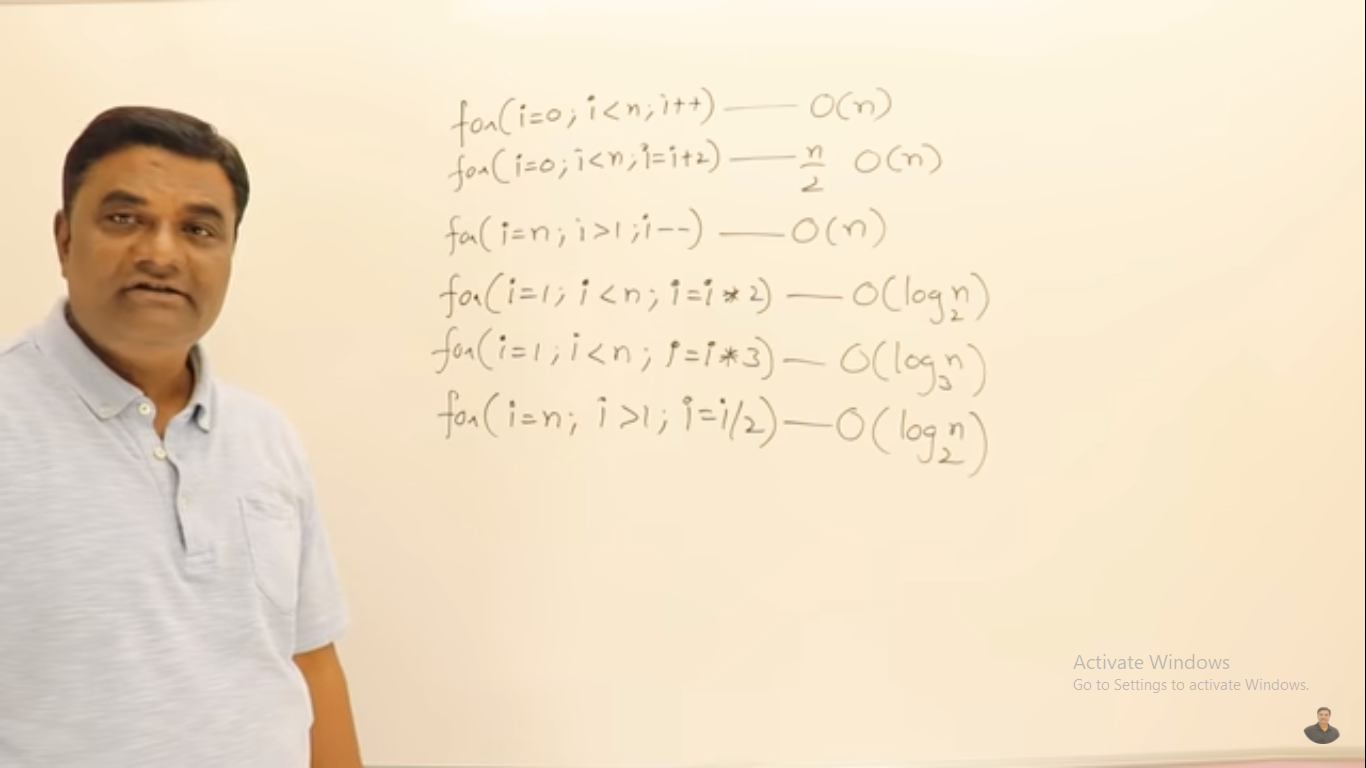 for(i=0; i<n; i++) —— O(n)
for(i=0; i<n; i=i+2) —— n/2 O(n)
for(i=n; i>1; i--) —— O(n)
for(i=1; i<n; i=i*2) —— O(log₂n)
for(i=1; i<n; i=i*3) — O(log₃n)
for(i=n; i>1; i=i/2) — O(log₂n)
Activate Windows
Go to Settings to activate Windows.